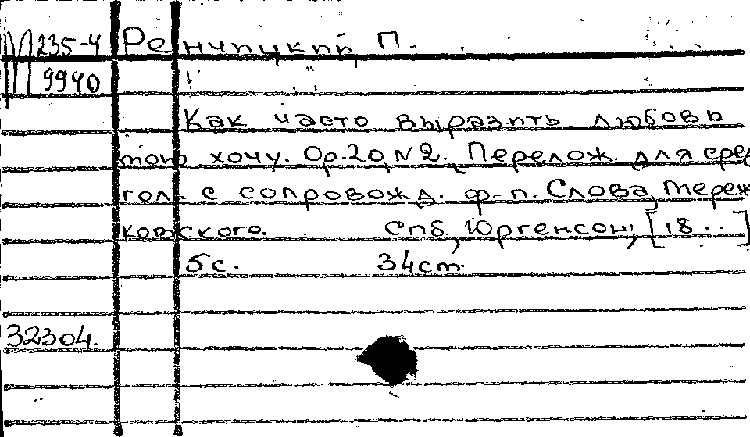 М 235-4 Ренчицкий, П.
9940
Как часто выразить любовь
мою хочу. Op.20, N2. Перелож. для сред
гол. с сопровожд. ф-п. Слова Мереж
ковского. Спб, Юргенсон, [18..]
5с. 34cm.
32304.